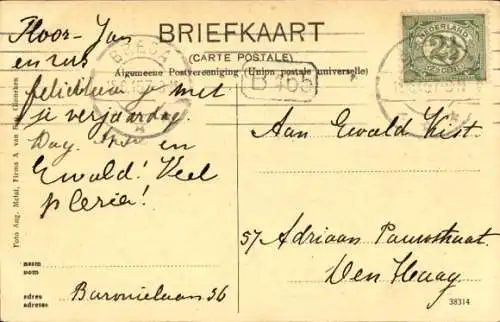 BRIEFKAART
(CARTE POSTALE)
Algemeene Postvereeniging (Union postale universelle)
Floor-Jan
en
feliciteeren je met
je verjaardag.
Dag, en
Ewald! Veel
plezier!
naam
nom
adres
adresse
Baronielaan 36
BREDA
B 165
NEDERLAND
2½
Aan Ewald Kist.
57 Adriaan Pauwstraat.
Den Haag
38314
Foto Aug. Melai, Firma A. van Erp, Ginneken